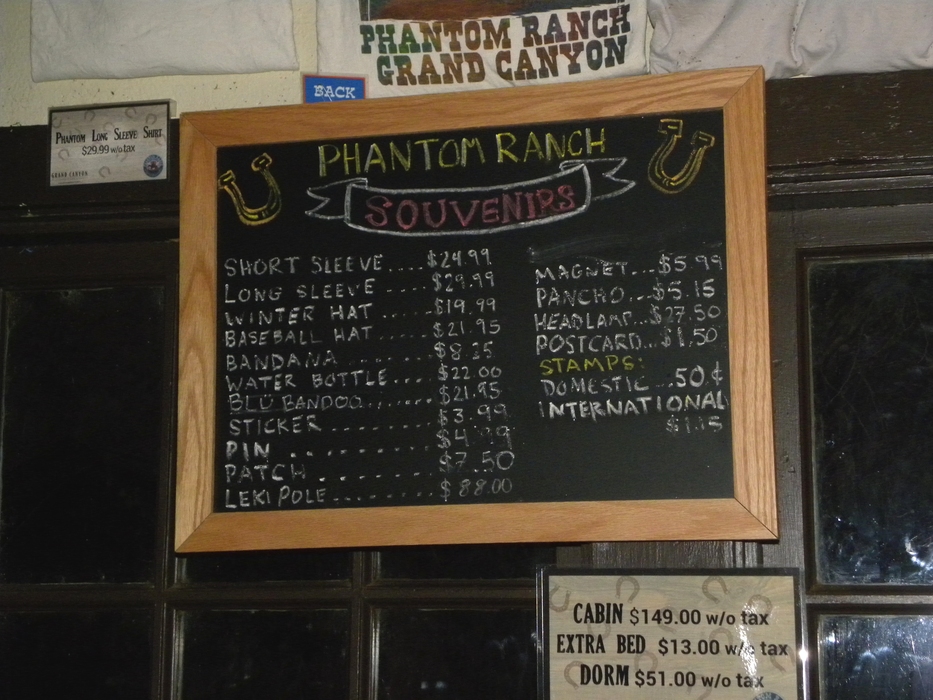 PHANTOM RANCH
GRAND CANYON
BACK
PHANTOM LONG SLEEVE SHIRT
$29.99 w/o tax
GRAND CANYON
PHANTOM RANCH
SOUVENIRS
SHORT SLEEVE....$24.99
LONG SLEEVE.....$29.99
WINTER HAT......$19.99
BASEBALL HAT.....$21.95
BANDANA.........$8.25
WATER BOTTLE....$22.00
BLU BANDOO.......$21.95
STICKER.........$3.99
PIN.........$4.99
PATCH.......$7.50
LEKI POLE........$88.00
MAGNET...$5.99
PANCHO...$5.15
HEADLAMP...$27.50
POSTCARD...$1.50
STAMPS:
DOMESTIC...50¢
INTERNATIONAL
$1.15
CABIN $149.00 w/o tax
EXTRA BED $13.00 w/o tax
DORM $51.00 w/o tax